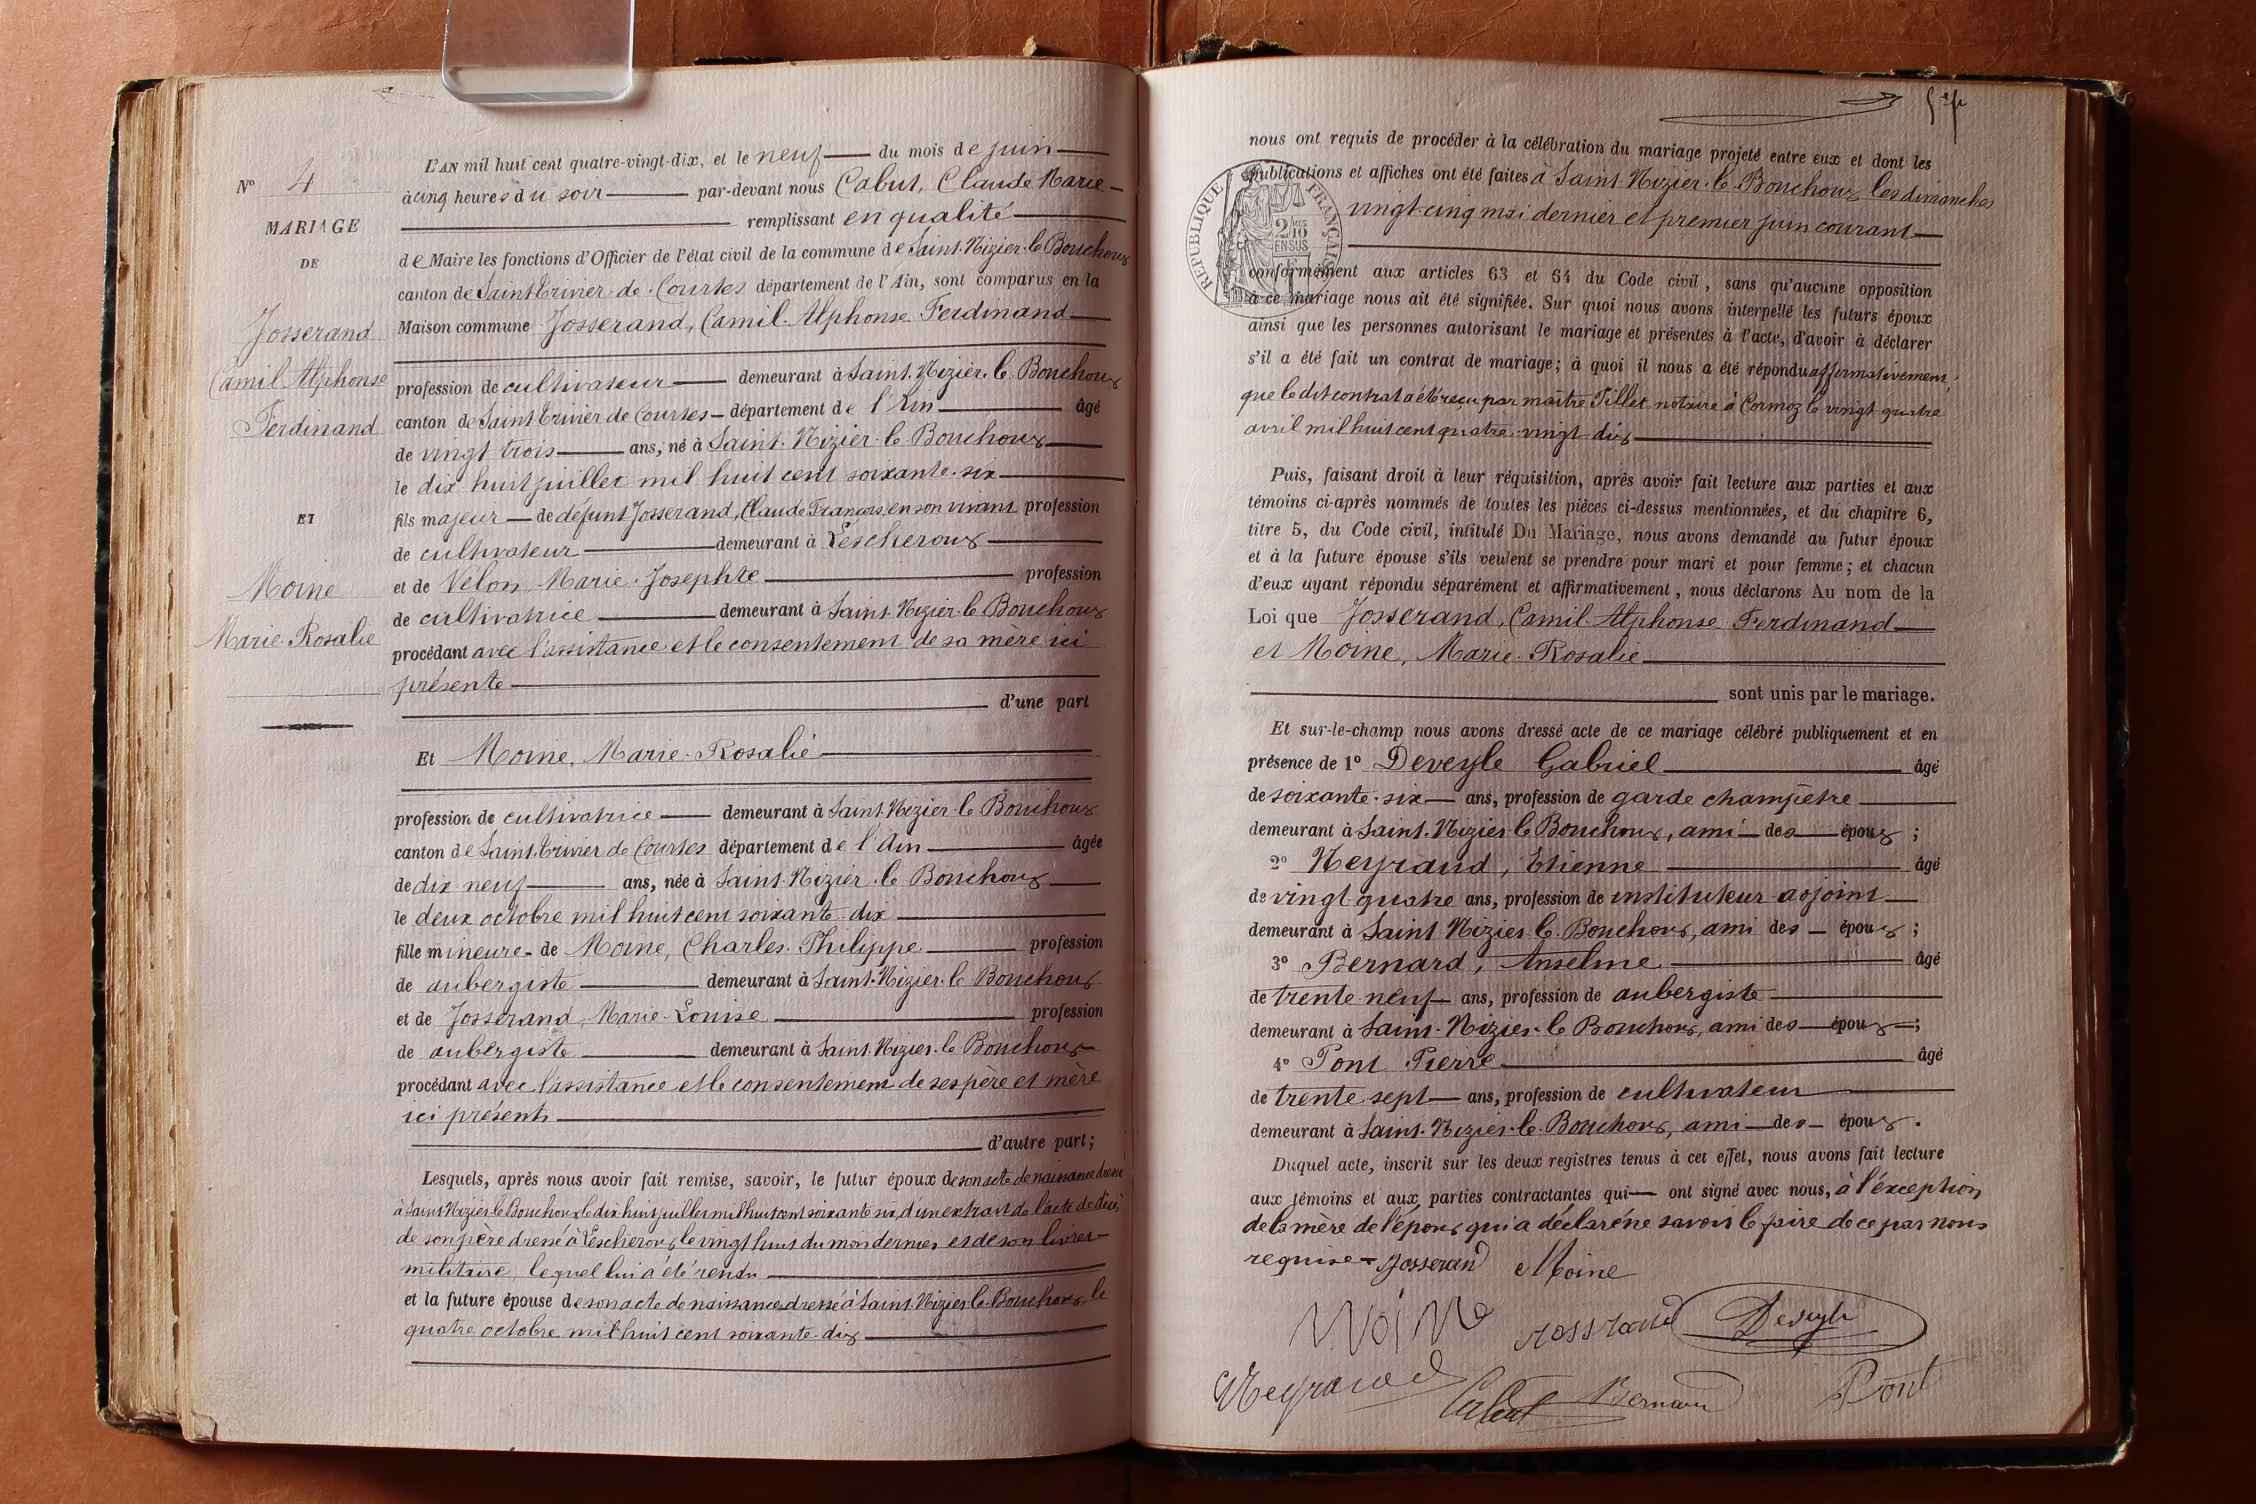 N° 4
MARIAGE
DE
Josserand
Camil Alphonse
Ferdinand
ET
Moine
Marie-Rosalie
L'AN mil huit cent quatre-vingt-dix, et le neuf du mois de juin
à cinq heures du soir par-devant nous Cabut, Claude Marie
remplissant en qualité
de Maire les fonctions d'Officier de l'état civil de la commune de Saint-Nizier-le-Bouchoux
canton de Saint-Trivier-de-Courtes département de l'Ain, sont comparus en la
Maison commune Josserand, Camil-Alphonse Ferdinand
profession de cultivateur demeurant à Saint-Nizier-le-Bouchoux
canton de Saint Trivier de Courtes département de l'Ain âgé
de vingt trois ans, né à Saint-Nizier-le-Bouchoux
le dix-huit juillet mil huit cent soixante-six
fils majeur de défunt Josserand, Claude François, en son vivant profession
de cultivateur demeurant à Lescheroux
et de Velon Marie-Josephte profession
de cultivatrice demeurant à Saint-Nizier-le-Bouchoux
procédant avec l'assistance et le consentement de sa mère ici
présente
d'une part
Et Moine, Marie-Rosalie
profession de cultivatrice demeurant à Saint-Nizier-le-Bouchoux
canton de Saint-Trivier de Courtes département de l'Ain âgée
de dix-neuf ans, née à Saint-Nizier-le-Bouchoux
le deux octobre mil huit cent soixante-dix
fille mineure de Moine, Charles-Philippe profession
de aubergiste demeurant à Saint-Nizier-le-Bouchoux
et de Josserand, Marie-Louise profession
de aubergiste demeurant à Saint-Nizier-le-Bouchoux
procédant avec l'assistance et le consentement de ses père et mère
ici présents
d'autre part;
Lesquels, après nous avoir fait remise, savoir, le futur époux de son acte de naissance dressé
à Saint-Nizier-le-Bouchoux le dix-huit juillet mil huit cent soixante six, d'un extrait de l'acte de décès
de son père dressé à Lescheroux le vingt huit du mois dernier et de son livret
militaire, lequel lui a été rendu
et la future épouse de son acte de naissance dressé à Saint-Nizier-le-Bouchoux, le
quatre octobre mil huit cent soixante-dix
nous ont requis de procéder à la célébration du mariage projeté entre eux et dont les
publications et affiches ont été faites à Saint-Nizier-le-Bouchoux les dimanches
vingt-cinq mai dernier et premier juin courant
RÉPUBLIQUE FRANÇAISE
2/10 EN SUS
conformément aux articles 63 et 64 du Code civil, sans qu'aucune opposition
à ce mariage nous ait été signifiée. Sur quoi nous avons interpellé les futurs époux
ainsi que les personnes autorisant le mariage et présentes à l'acte, d'avoir à déclarer
s'il a été fait un contrat de mariage; à quoi il nous a été répondu affirmativement,
que le dit contrat a été reçu par maître Pillet notaire à Cormoz le vingt quatre
avril mil huit cent quatre-vingt-dix
Puis, faisant droit à leur réquisition, après avoir fait lecture aux parties et aux
témoins ci-après nommés de toutes les pièces ci-dessus mentionnées, et du chapitre 6,
titre 5, du Code civil, intitulé Du Mariage, nous avons demandé au futur époux
et à la future épouse s'ils veulent se prendre pour mari et pour femme; et chacun
d'eux ayant répondu séparément et affirmativement, nous déclarons Au nom de la
Loi que Josserand, Camil-Alphonse Ferdinand
et Moine, Marie-Rosalie
sont unis par le mariage.
Et sur-le-champ nous avons dressé acte de ce mariage célébré publiquement et en
présence de 1° Deveyle Gabriel âgé
de soixante-six ans, profession de garde champêtre
demeurant à Saint-Nizier-le-Bouchoux, ami des époux;
2° Neyraud, Etienne âgé
de vingt quatre ans, profession de instituteur adjoint
demeurant à Saint-Nizier-le-Bouchoux, ami des époux;
3° Bernard, Anselme âgé
de trente-neuf ans, profession de aubergiste
demeurant à Saint-Nizier-le-Bouchoux, ami des époux;
4° Pont Pierre âgé
de trente sept ans, profession de cultivateur
demeurant à Saint-Nizier-le-Bouchoux, ami des époux.
Duquel acte, inscrit sur les deux registres tenus à cet effet, nous avons fait lecture
aux témoins et aux parties contractantes qui ont signé avec nous, à l'exception
de la mère de l'époux qui a déclaré ne savoir le faire de ce par nous
requise Josserand Moine
Moine Josserand Deveyle
Neyraud Cabut Bernard Pont